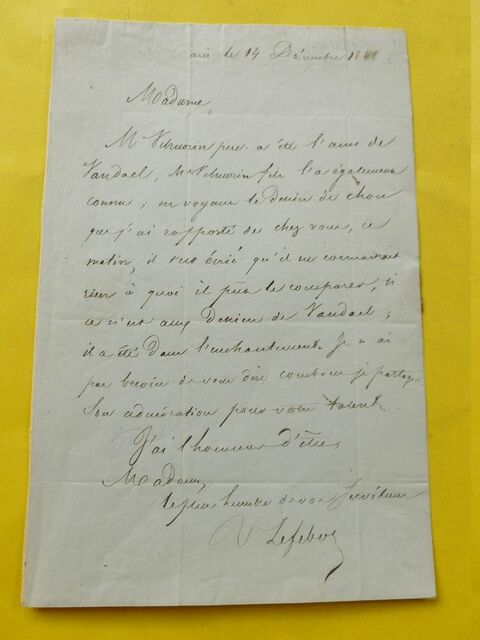 Paris le 14 Décembre 18
Madame,
Mr Vilmorin père a été l'ami de
Vandael, Mr Vilmorin fils l'a également
connu ; en voyant le dessin de chou
que j'ai rapporté de chez vous, ce
matin, il s'est écrié qu'il ne connaissait
rien à quoi il pût le comparer, si
ce n'est aux dessins de Vandael ;
il a été dans l'enchantement. Je n'ai
pas besoin de vous dire combien je partage
son admiration pour votre talent.
J'ai l'honneur d'être,
Madame,
le plus humble de vos serviteurs
V Lefebvre